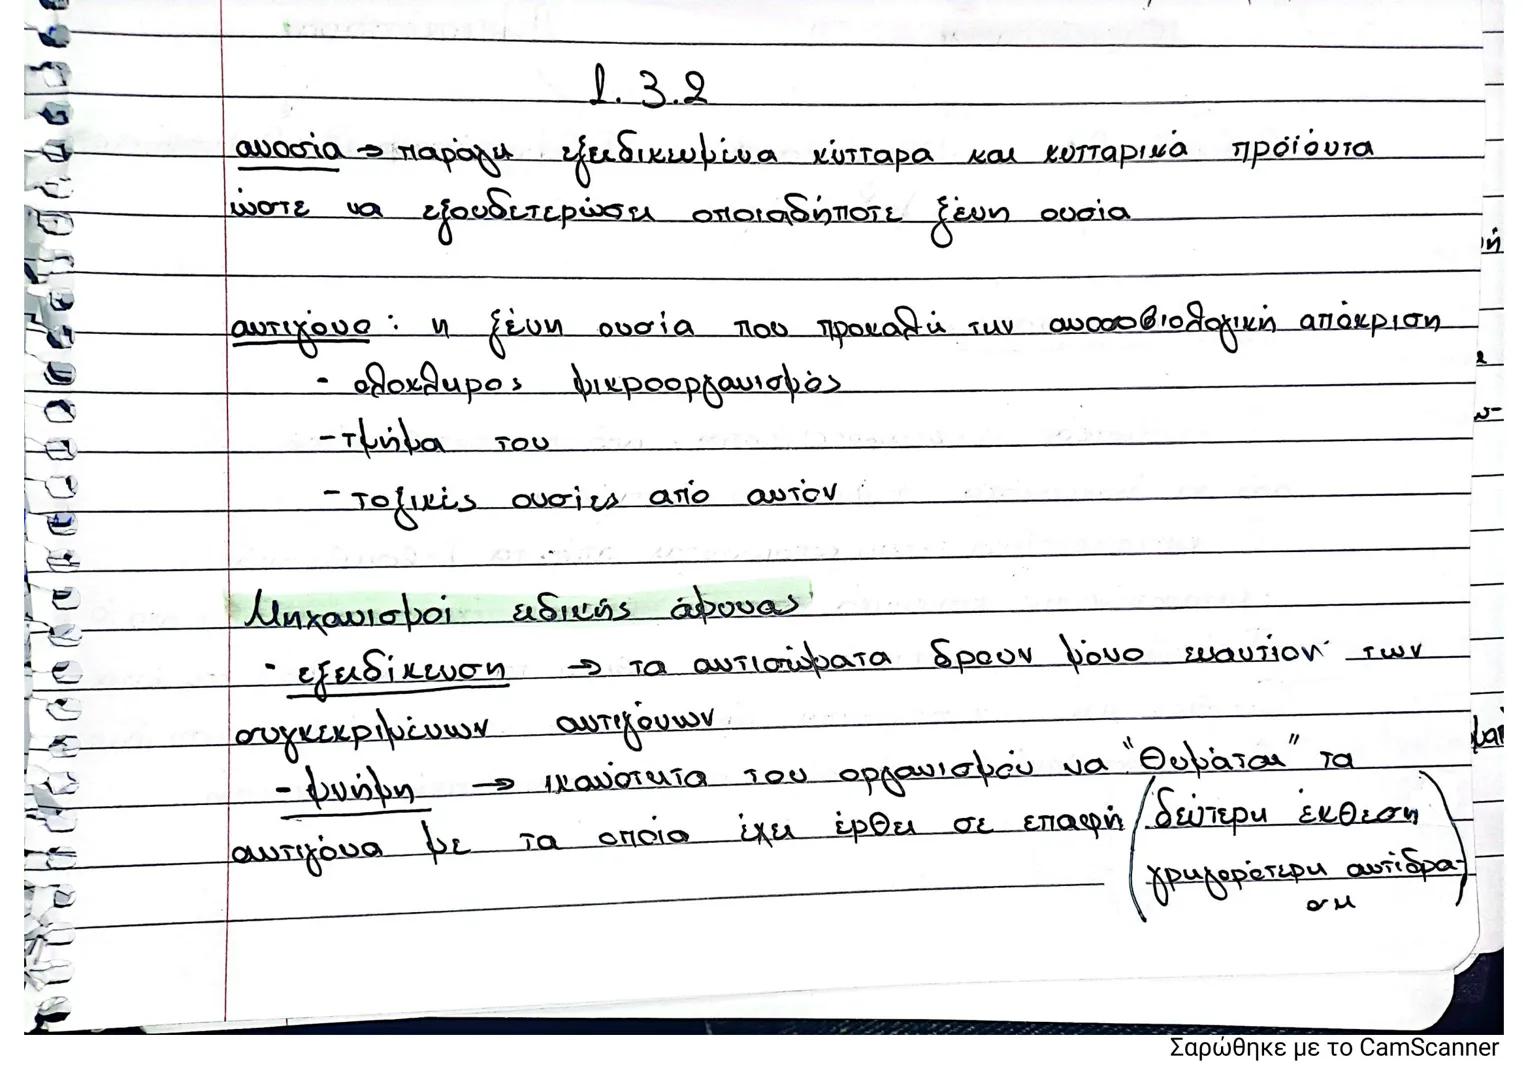 1.3.2
ανοσία → παράγει εξειδικευμένα κύτταρα και κυτταρικά προϊόντα
ώστε να εξουδετερώσει οποιαδήποτε ξένη ουσία
αντιγόνο : η ξένη ουσία που προκαλεί την ανοσοβιολογική απόκριση
- ολόκληρος μικροοργανισμός
- τμήμα του
- τοξικές ουσίες από αυτόν
Μηχανισμοί ειδικής άμυνας
· εξειδίκευση → τα αντισώματα δρουν μόνο εναντίον των
συγκεκριμένων αντιγόνων
- μνήμη → ικανότητα του οργανισμού να "θυμάται" τα
αντιγόνα με τα οποία έχει έρθει σε επαφή (δεύτερη έκθεση
γρηγορότερη αντίδρα-
ση)
Σαρώθηκε με το CamScanner